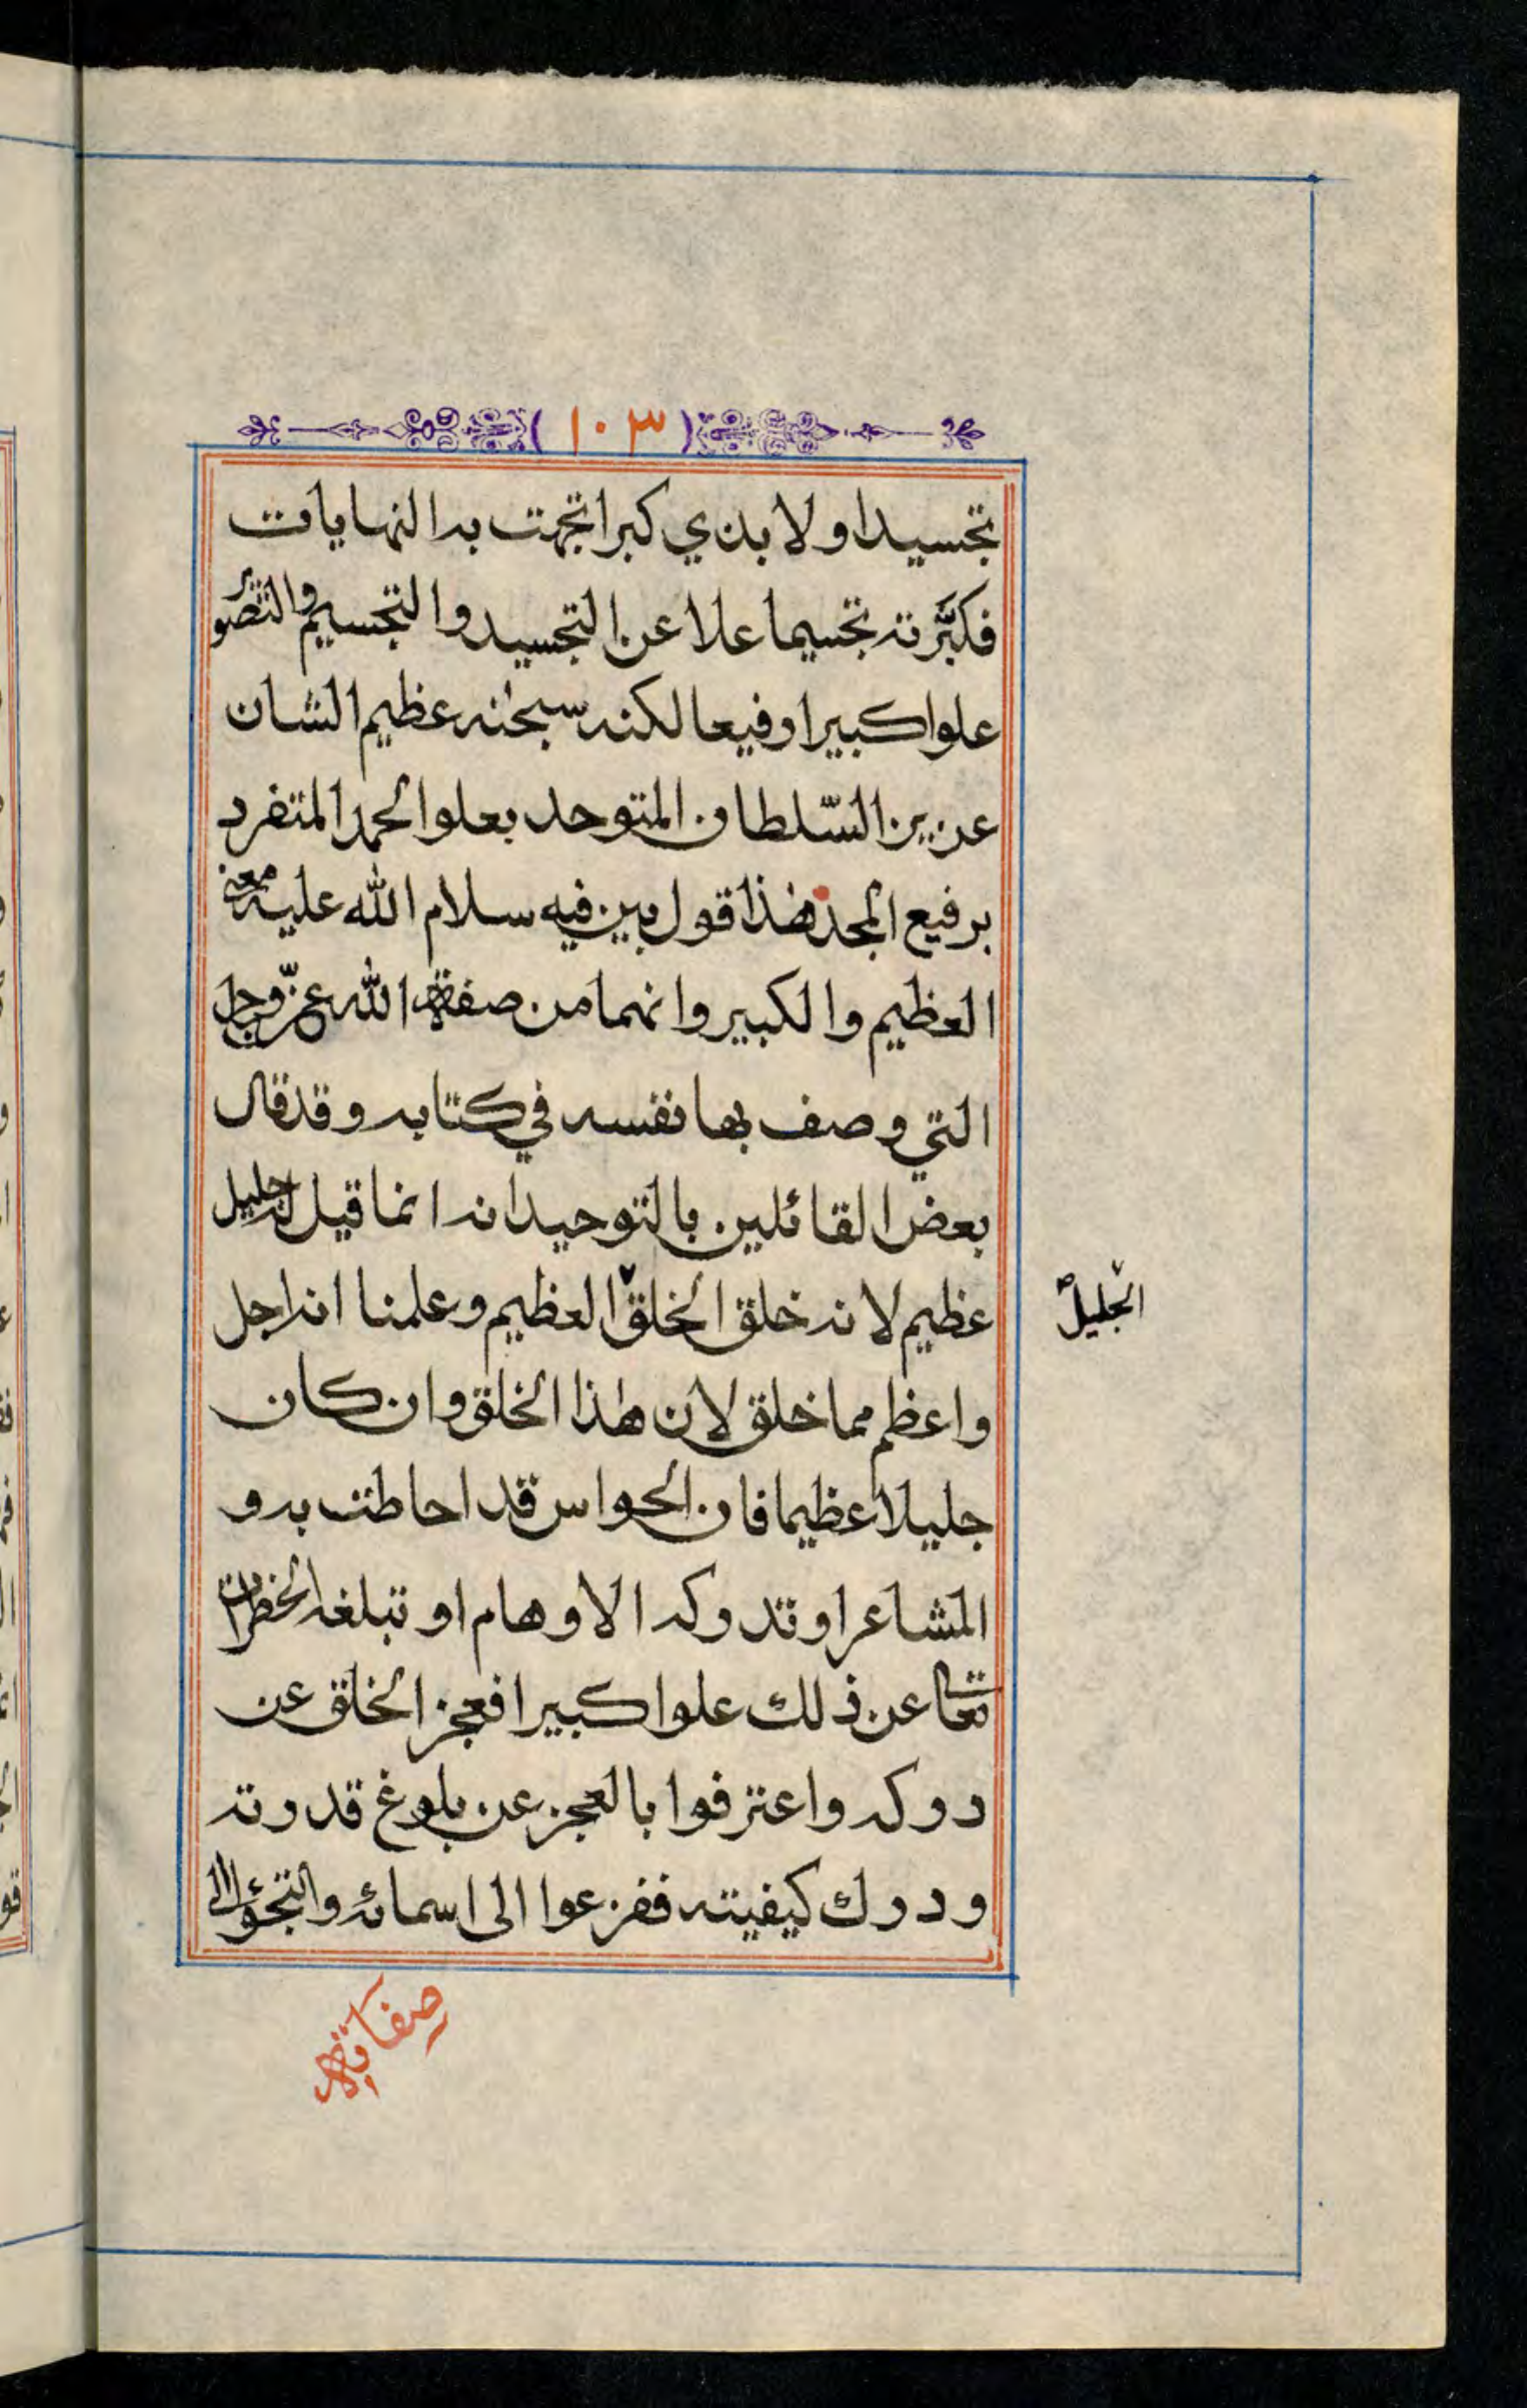 (١٠٣)
تجسيدا ولا بذي كبر اتجهت به النهايات
فكبّرته تجسيما علا عن التجسيد والتجسيم والتصوير
علوا كبيرا رفيعا لكنه سبحٰنه عظيم الشان
عزيز السّلطان المتوحد بعلو الحمد المتفرد
برفيع المجد فهذا قول بين فيه سلام الله عليه معنى
العظيم والكبير وانهما من صفة الله عزّ وجل
التي وصف بها نفسه في كتابه وقد قال
بعض القائلين بالتوحيد انه انما قيل له جليل
عظيم لانه خلق الخلق العظيم وعلمنا انه اجل
الجليل
واعظم مما خلق لان هذا الخلق وان كان
جليلا عظيما فان الحواس قد احاطت به و
المشاعر او تدركه الاوهام او تبلغه الخطرات
تعالى عن ذلك علوا كبيرا فعجز الخلق عن
دركه واعترفوا بالعجز عن بلوغ قدرته
ودرك كيفيته ففزعوا الى اسمائه والتجؤا الى
صفاته